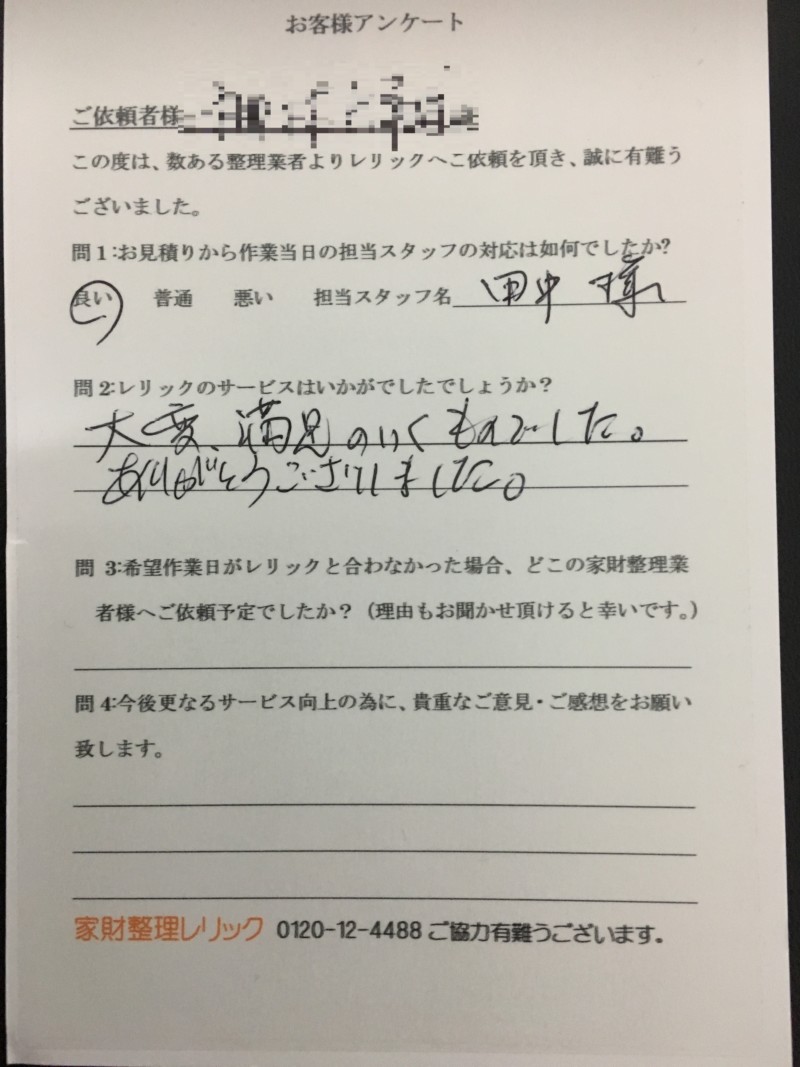 お客様アンケート
ご依頼者様
この度は、数ある整理業者よりレリックへご依頼を頂き、誠に有難う
ございました。
問1:お見積りから作業当日の担当スタッフの対応は如何でしたか?
良い 普通 悪い 担当スタッフ名 田中 様
問2:レリックのサービスはいかがでしたでしょうか?
大変、満足のいくものでした。
ありがとうございました。
問 3:希望作業日がレリックと合わなかった場合、どこの家財整理業
者様へご依頼予定でしたか?(理由もお聞かせ頂けると幸いです。)
問 4:今後更なるサービス向上の為に、貴重なご意見・ご感想をお願い
致します。
家財整理レリック 0120-12-4488 ご協力有難うございます。